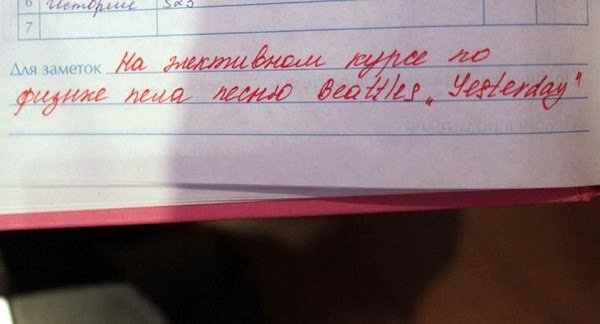 6 История 323
7
Для заметок На элективном курсе по
физике пела песню Beattles „Yesterday"